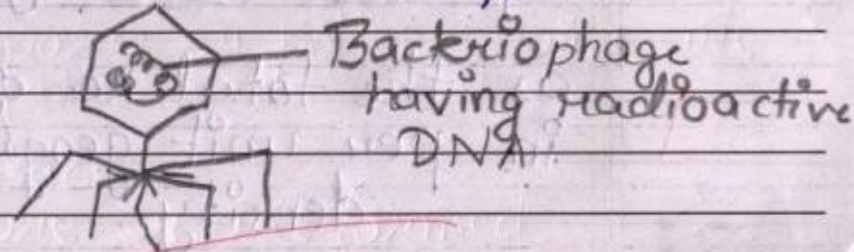 Bacteriophage
having radioactive
DNA